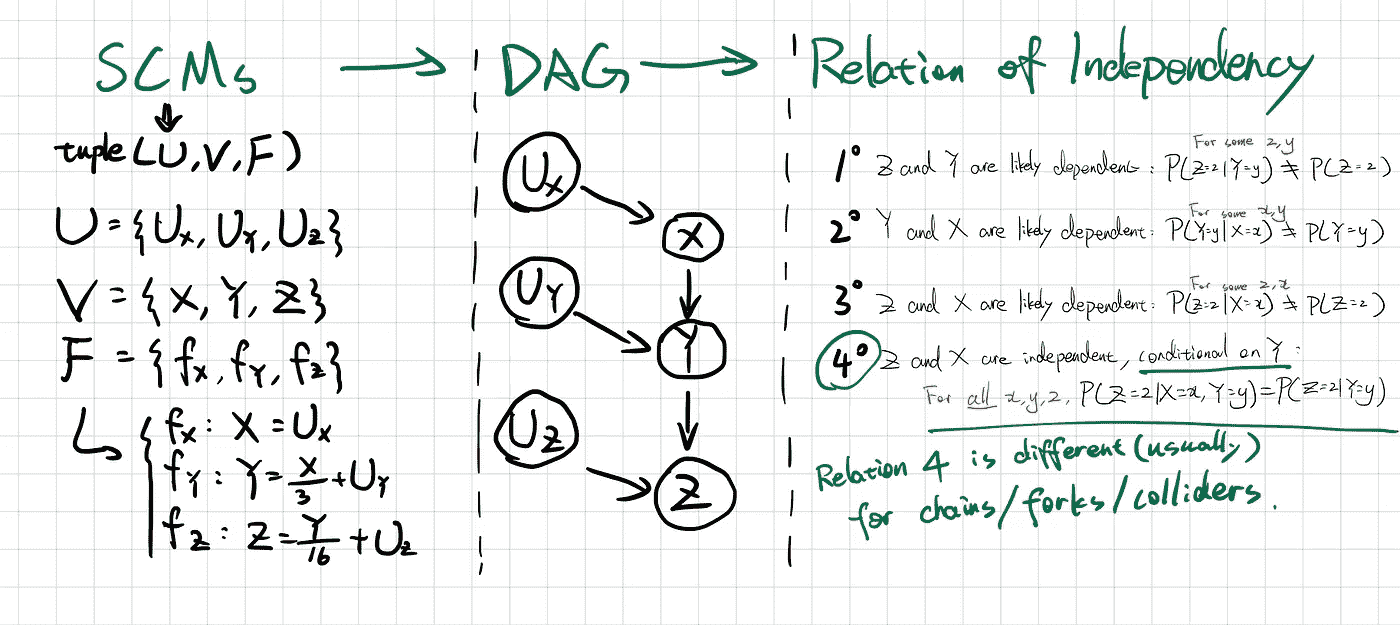 SCMs → DAG → Relation of Independency
tuple(U,V,F)
U = {Ux, UY, Uz}
V = {X, Y, Z}
F = {fx, fY, fz}
fx : X = Ux
fY : Y = X/3 + UY
fz : Z = Y/16 + Uz
Ux
X
UY
Y
UZ
Z
For some z,y
1° Z and Y are likely dependent : P(Z=z|Y=y) ≠ P(Z=z)
For some x,y
2° Y and X are likely dependent : P(Y=y|X=x) ≠ P(Y=y)
For some z,x
3° Z and X are likely dependent : P(Z=z|X=x) ≠ P(Z=z)
4° Z and X are independent, conditional on Y :
For all x,y,z, P(Z=z|X=x,Y=y)=P(Z=z|Y=y)
Relation 4 is different (usually)
for chains/forks/colliders.